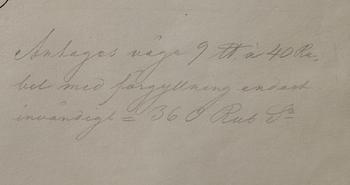 Antages väga 9 ℔ à 40 Ru-
bel med förgyllning endast
invändigt = 360 Rub S?